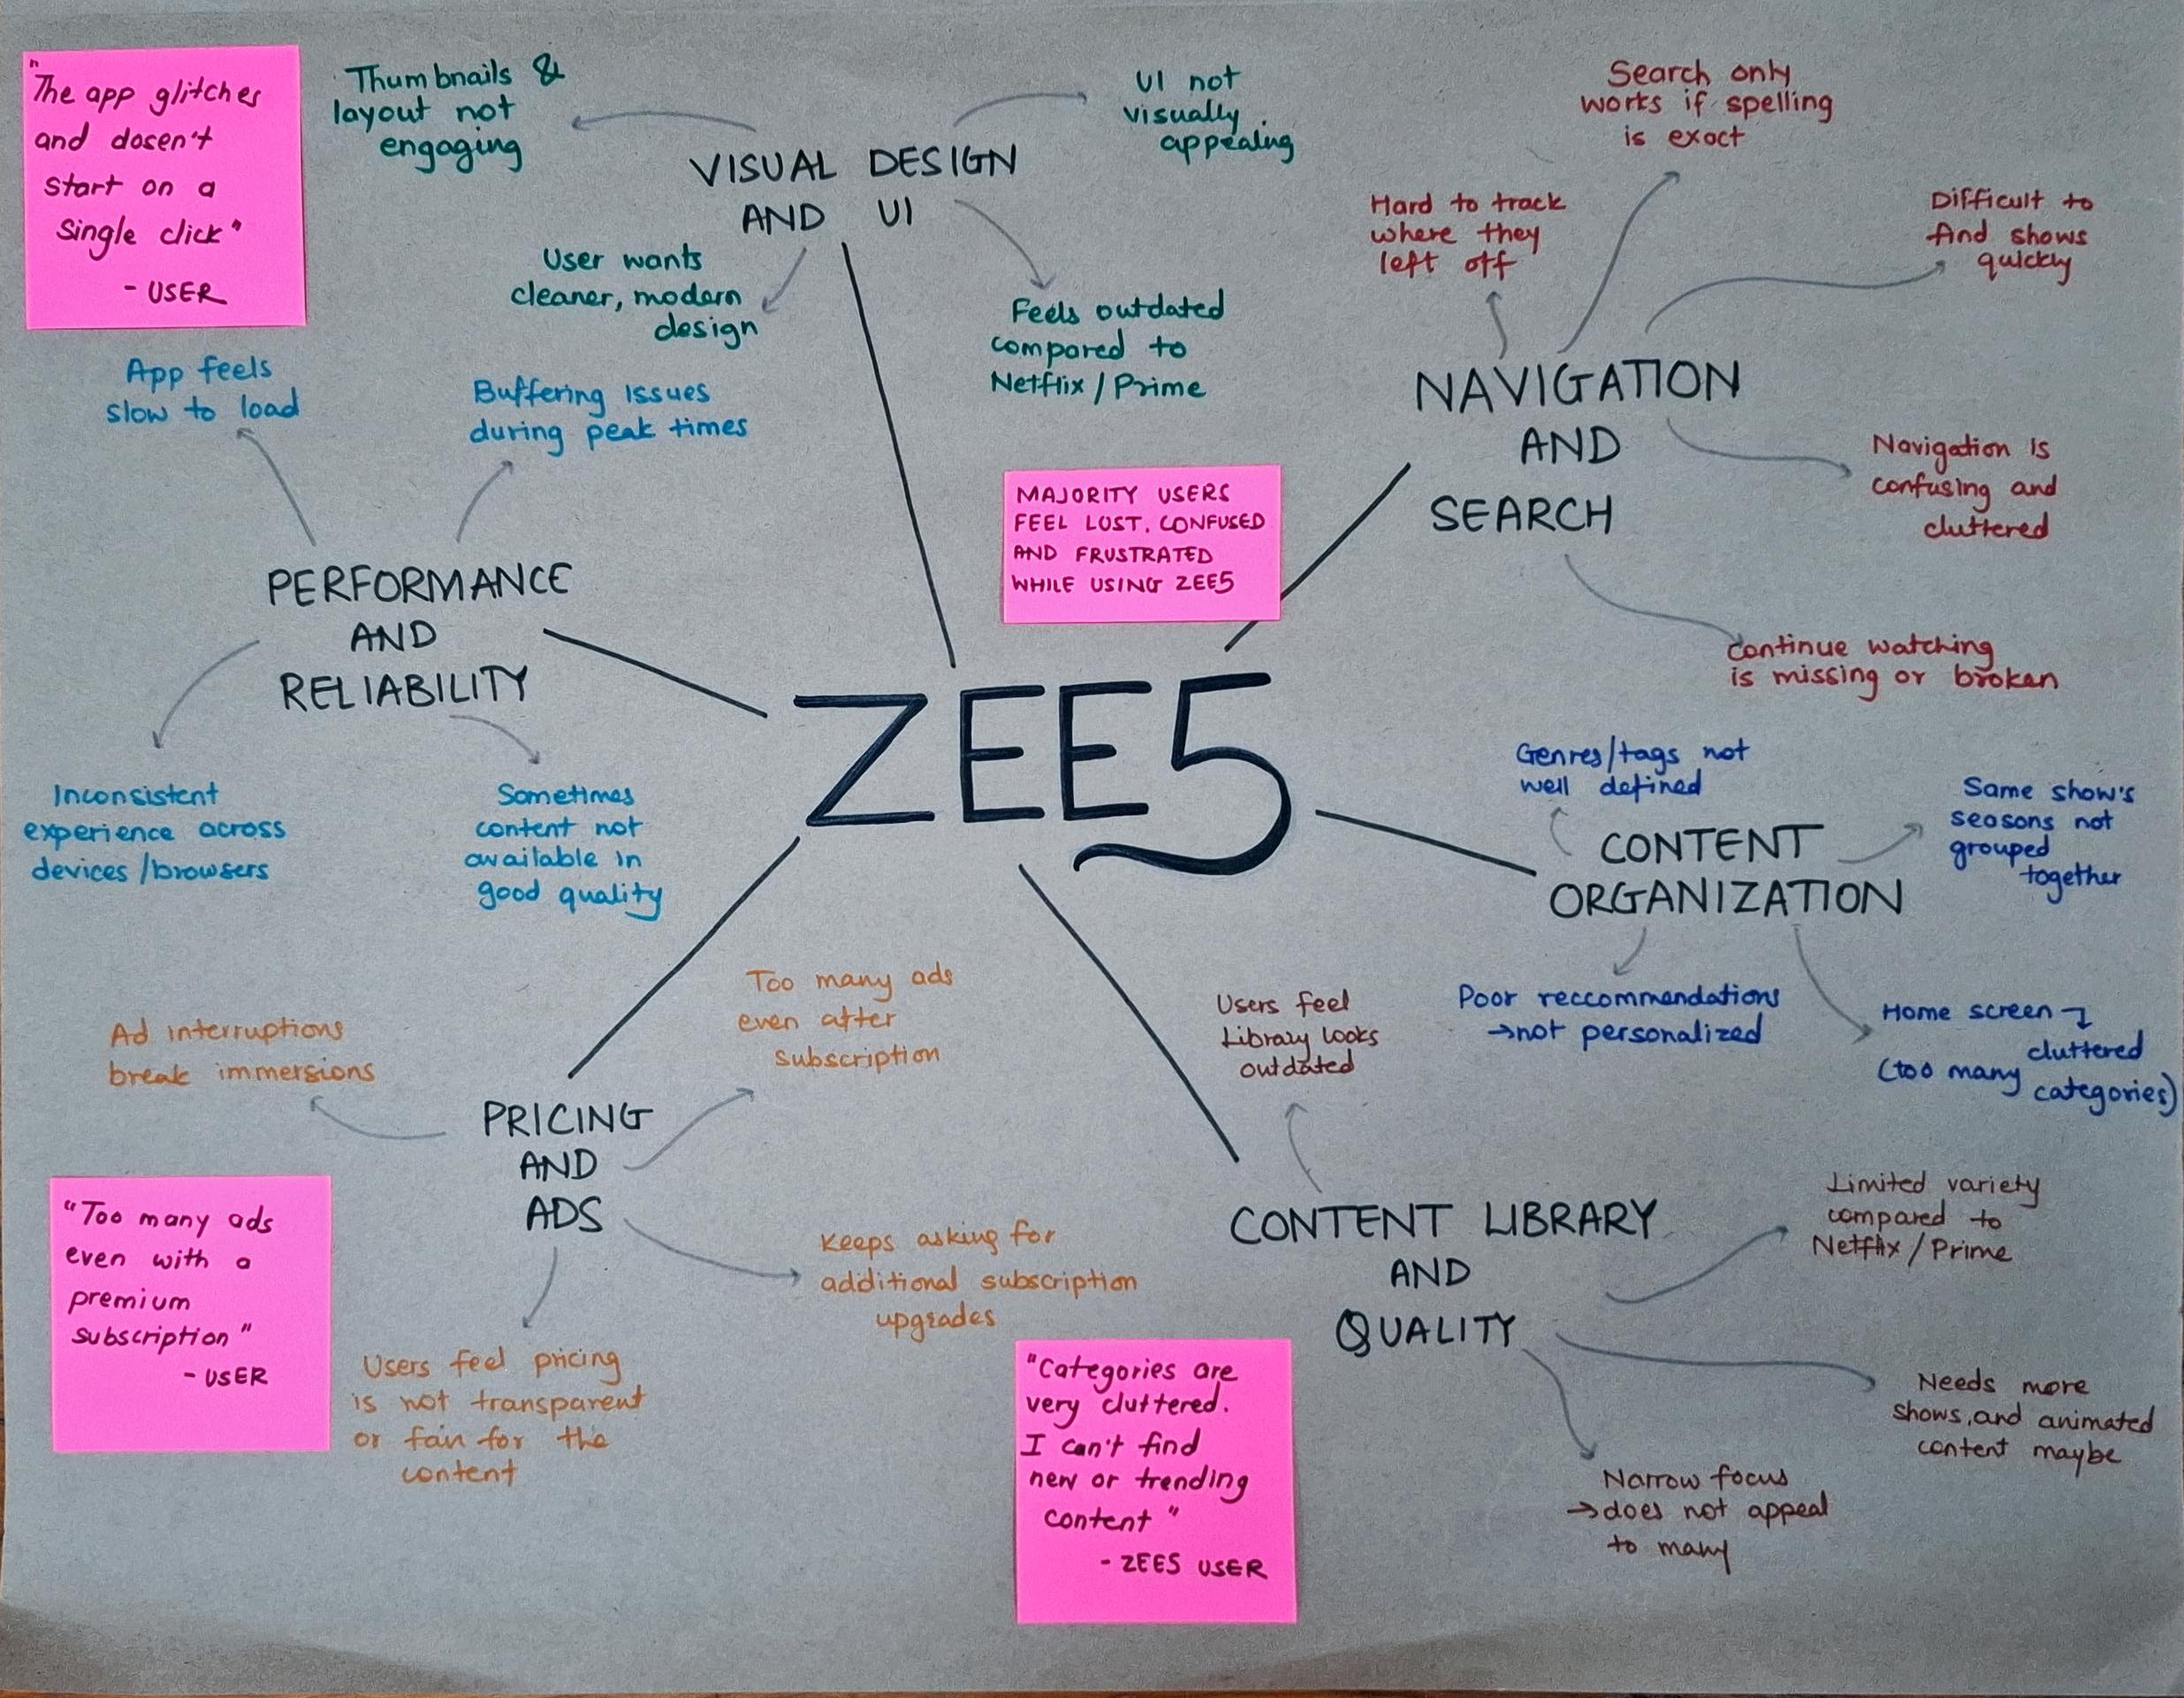 "The app glitches
and dosen't
start on a
single click"
- USER
Thumbnails &
layout not
engaging
UI not
visually
appealing
VISUAL DESIGN
AND UI
User wants
cleaner, modern
design
Feels outdated
compared to
Netflix / Prime
Search only
works if spelling
is exact
Hard to track
where they
left off
Difficult to
find shows
quickly
NAVIGATION
AND
SEARCH
Navigation is
confusing and
cluttered
continue watching
is missing or broken
App feels
slow to load
Buffering issues
during peak times
PERFORMANCE
AND
RELIABILITY
Inconsistent
experience across
devices / browsers
Sometimes
content not
available in
good quality
MAJORITY USERS
FEEL LOST, CONFUSED
AND FRUSTRATED
WHILE USING ZEE5
ZEE5
Genres/tags not
well defined
Same show's
seasons not
grouped
together
CONTENT
ORGANIZATION
Poor reccommendations
→not personalized
Home screen
cluttered
(too many
categories)
Ad interruptions
break immersions
Too many ads
even after
subscription
PRICING
AND
ADS
Keeps asking for
additional subscription
upgrades
Users feel pricing
is not transparent
or fair for the
content
"Too many ads
even with a
premium
subscription"
- USER
Users feel
Library looks
outdated
CONTENT LIBRARY
AND
QUALITY
Limited variety
compared to
Netflix / Prime
Needs more
shows, and animated
content maybe
Narrow focus
→does not appeal
to many
"Categories are
very cluttered.
I can't find
new or trending
content"
- ZEE5 USER